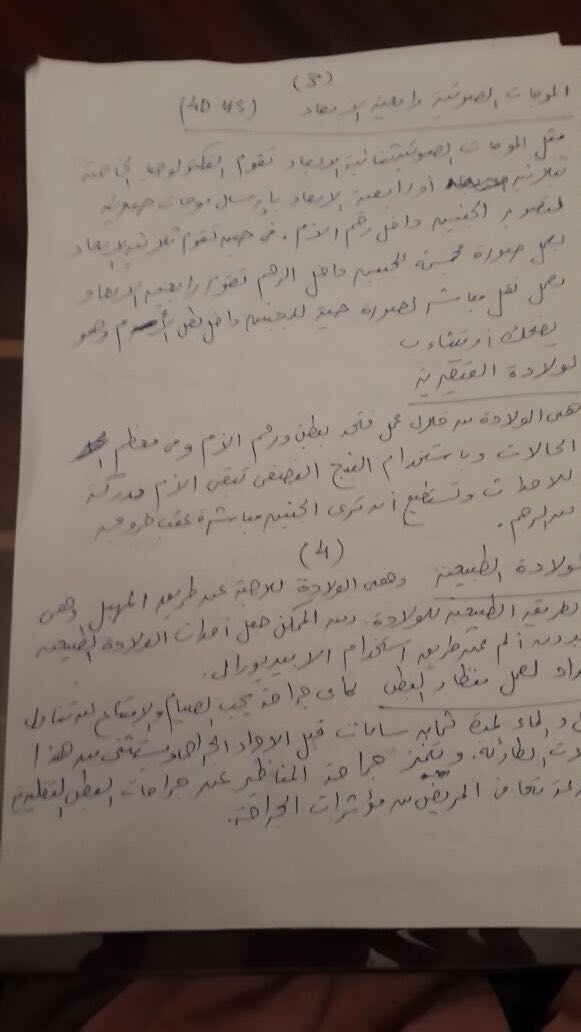 (3)
الموجات الصوتية رباعية الابعاد (4D US)
مثل الموجات الصوتية ثنائية الابعاد تقوم التكنولوجيا الخاصة
ثلاثية أو رباعية الابعاد بإرسال موجات صوتية
لتصوير الجنين داخل رحم الأم. فى حين تقوم ثلاثية الابعاد
بعمل صورة مجسمة للجنين داخل الرحم تقوم رباعية الابعاد
بعمل نقل مباشر لصورة حية للجنين داخل بطن الأم وهو
يضحك او يتثاءب
لولادة القيصرية
هى الولادة من خلال عمل فتحة ببطن ورحم الأم وفى معظم
الحالات وباستخدام البنج النصفى تبقى الأم مدركة
للاحداث وتستطيع أن ترى الجنين مباشرة عقب خروجه
من الرحم.
(4)
لولادة الطبيعية وهى الولادة عن طريق المهبل وهى
لطريقة الطبيعية للولادة. ومن الممكن جعل أحداث الولادة الطبيعية
بدون ألم عن طريق استخدام الابيديورال.
داد لعمل منظار البطن كأى جراحة يجب الصيام والامتناع عن تناول
والماء لمدة ثمانية ساعات قبل الاجراء الجراحى ويستثنى من هذا
لات الطارئة. وتتميز جراحة المناظير عن جراحات البطن التقليدية
رعة تعافى المريض من مؤثرات الجراحة.